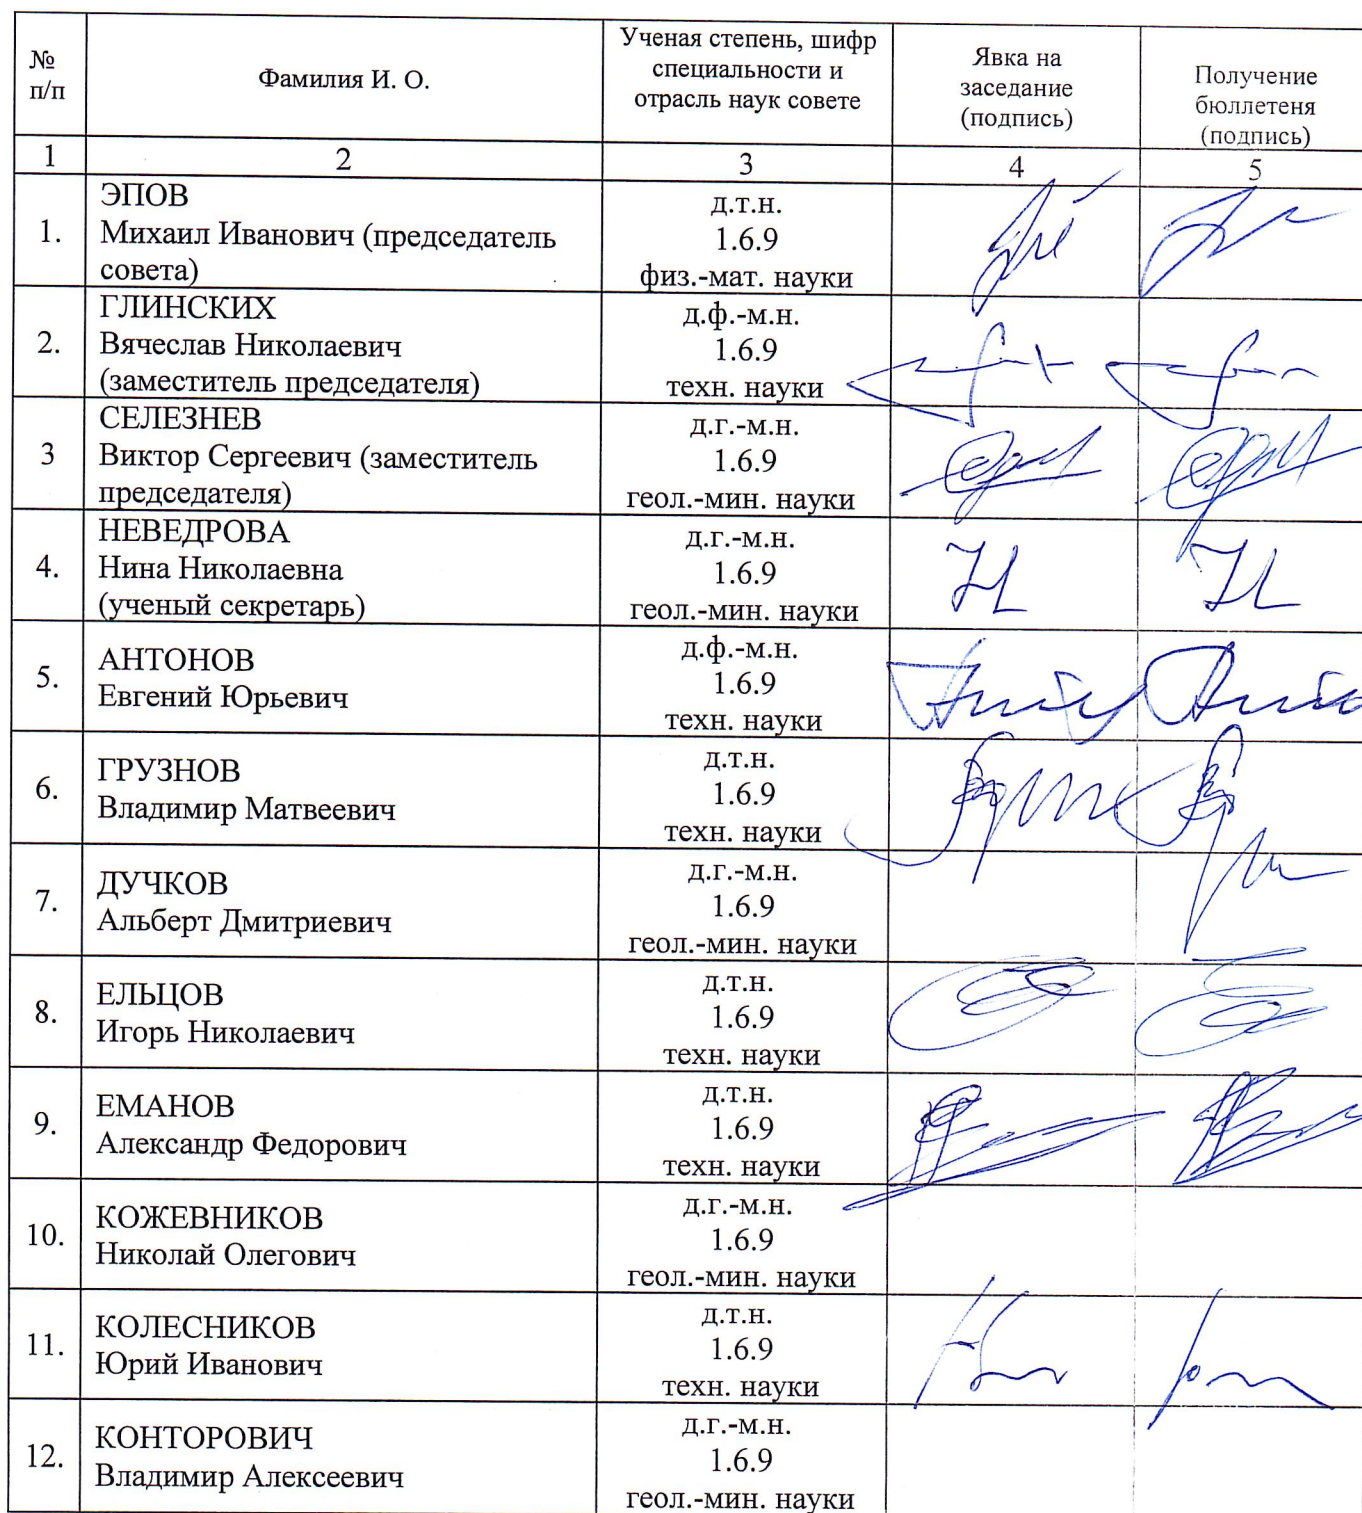 №
п/п
Фамилия И. О.
Ученая степень, шифр
специальности и
отрасль наук совете
Явка на
заседание
(подпись)
Получение
бюллетеня
(подпись)
1
2
3
4
5
1.
ЭПОВ
Михаил Иванович (председатель
совета)
д.т.н.
1.6.9
физ.-мат. науки
2.
ГЛИНСКИХ
Вячеслав Николаевич
(заместитель председателя)
д.ф.-м.н.
1.6.9
техн. науки
3
СЕЛЕЗНЕВ
Виктор Сергеевич (заместитель
председателя)
д.г.-м.н.
1.6.9
геол.-мин. науки
4.
НЕВЕДРОВА
Нина Николаевна
(ученый секретарь)
д.г.-м.н.
1.6.9
геол.-мин. науки
5.
АНТОНОВ
Евгений Юрьевич
д.ф.-м.н.
1.6.9
техн. науки
6.
ГРУЗНОВ
Владимир Матвеевич
д.т.н.
1.6.9
техн. науки
7.
ДУЧКОВ
Альберт Дмитриевич
д.г.-м.н.
1.6.9
геол.-мин. науки
8.
ЕЛЬЦОВ
Игорь Николаевич
д.т.н.
1.6.9
техн. науки
9.
ЕМАНОВ
Александр Федорович
д.т.н.
1.6.9
техн. науки
10.
КОЖЕВНИКОВ
Николай Олегович
д.г.-м.н.
1.6.9
геол.-мин. науки
11.
КОЛЕСНИКОВ
Юрий Иванович
д.т.н.
1.6.9
техн. науки
12.
КОНТОРОВИЧ
Владимир Алексеевич
д.г.-м.н.
1.6.9
геол.-мин. науки